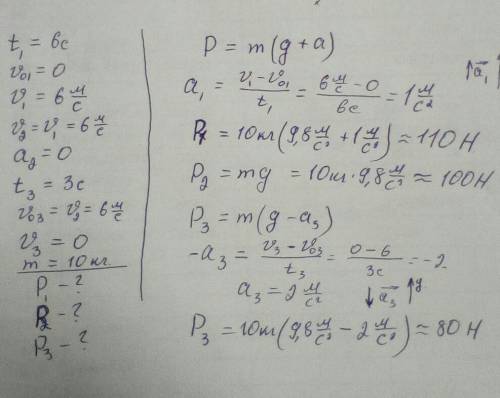 t₁ = 6с
v₀₁ = 0
v₁ = 6 м/с
v₂ = v₁ = 6 м/с
a₂ = 0
t₃ = 3с
v₀₃ = v₂ = 6 м/с
v₃ = 0
m = 10 кг
P₁ - ?
P₂ - ?
P₃ - ?
P = m(g + a)
a₁ = (v₁ - v₀₁)/t₁ = (6 м/с - 0)/6с = 1 м/с² ↑a⃗₁
P₁ = 10кг(9,8 м/с² + 1 м/с²) ≈ 110 Н
P₂ = mg = 10кг · 9,8 м/с² ≈ 100Н
P₃ = m(g - a₃)
-a₃ = (v₃ - v₀₃)/t₃ = (0 - 6)/3с = -2
a₃ = 2 м/с² ↓a⃗₃ ↑y
P₃ = 10кг(9,8 м/с² - 2 м/с²) ≈ 80 Н